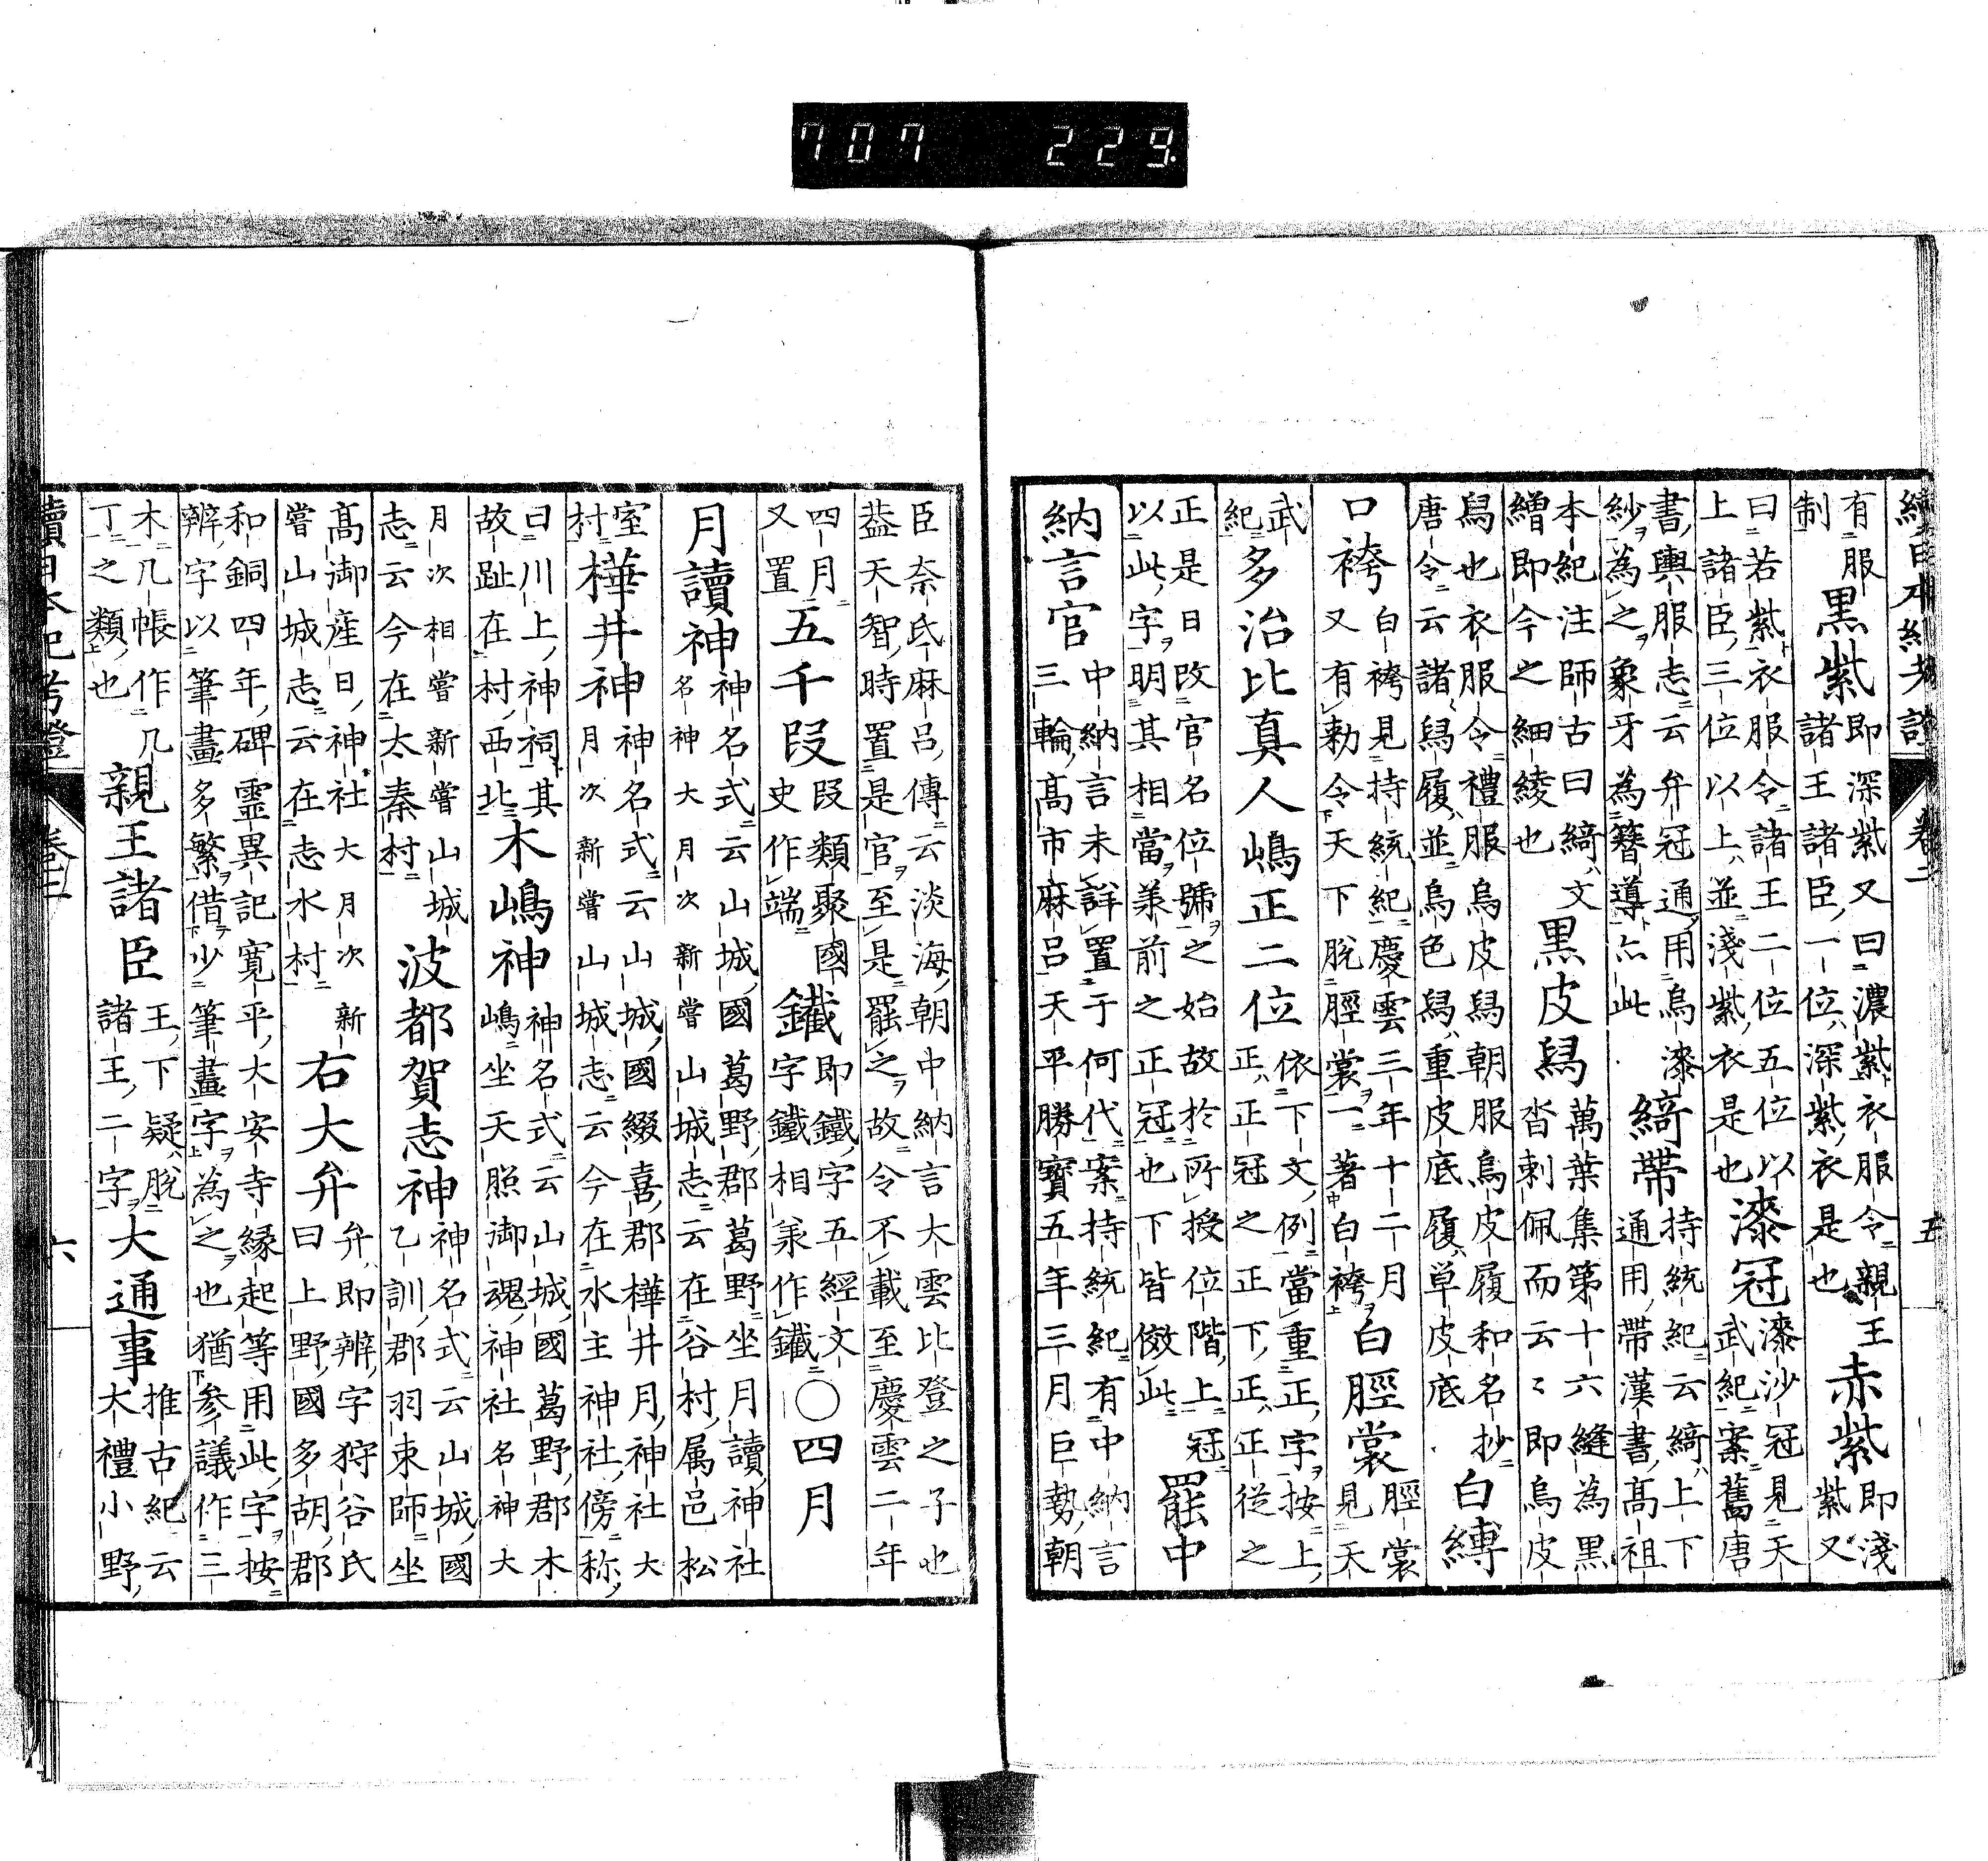 續日本紀考證 卷二 五
有服
制
黒紫
即深紫又曰濃紫衣服令親王
諸王諸臣一位深紫衣是也
赤紫
即淺
紫又
曰若紫衣服令諸王二位五位以
上諸臣三位以上並淺紫衣是也
漆冠
漆沙冠見天
武紀案舊唐
書輿服志云弁冠通用烏漆
紗為之象牙為簪導亦此
綺帶
持統紀云綺上下
通用帶漢書高祖
本紀注師古曰綺文
繒即今之細綾也
黒皮舄
萬葉集第十六縫為黒
沓刺佩而云〻即烏皮
舄也衣服令禮服烏皮舄朝服烏皮履和名抄
唐令云諸舄履並烏色舄重皮底履単皮底
白縛
口袴
白袴見持統紀慶雲三年十二月
又有勅令天下脱脛裳一著白袴
白脛裳
脛裳
見天
武
紀
多治比真人嶋正二位
依下文例當重正字按上
正正冠之正下正正從之
正是日改官名位號之始故於所授位階上冠
以此字明其相當兼前之正冠也下皆倣此
罷中
納言官
中納言未詳置于何代案持統紀有中納言
三輪高市麻呂天平勝寳五年三月巨勢朝
臣奈氏麻呂傳云淡海朝中納言大雲比登之子也
葢天智時置是官至是罷之故令不載至慶雲二年
四月
又置
五千段
段類聚國
史作端
鐵
即鐵字五經文
字鐵相兼作鐵
〇四月
月讀神
神名式云山城國葛野郡葛野坐月讀神社
名神大月次新嘗山城志云在谷村属邑松
室
村
樺井神
神名式云山城國綴喜郡樺井月神社大
月次新嘗山城志云今在水主神社傍称
曰川上神祠其
故趾在村西北
木嶋神
神名式云山城國葛野郡木
嶋坐天照御魂神社名神大
月次相嘗新嘗山城
志云今在太秦村
波都賀志神
神名式云山城國
乙訓郡羽束師坐
髙御産日神社大月次新
嘗山城志云在志水村
右大弁
弁即辨字狩谷氏
曰上野國多胡郡
和銅四年碑霊異記寛平大安寺縁起等用此字按
辨字以筆畫多繁借少筆畫字為之也猶参議作三
木几帳作几
丁之類也
親王諸臣
王下疑脱
諸王二字
大通事
推古紀云
大禮小野
續日本紀考證 卷二 六
707 229